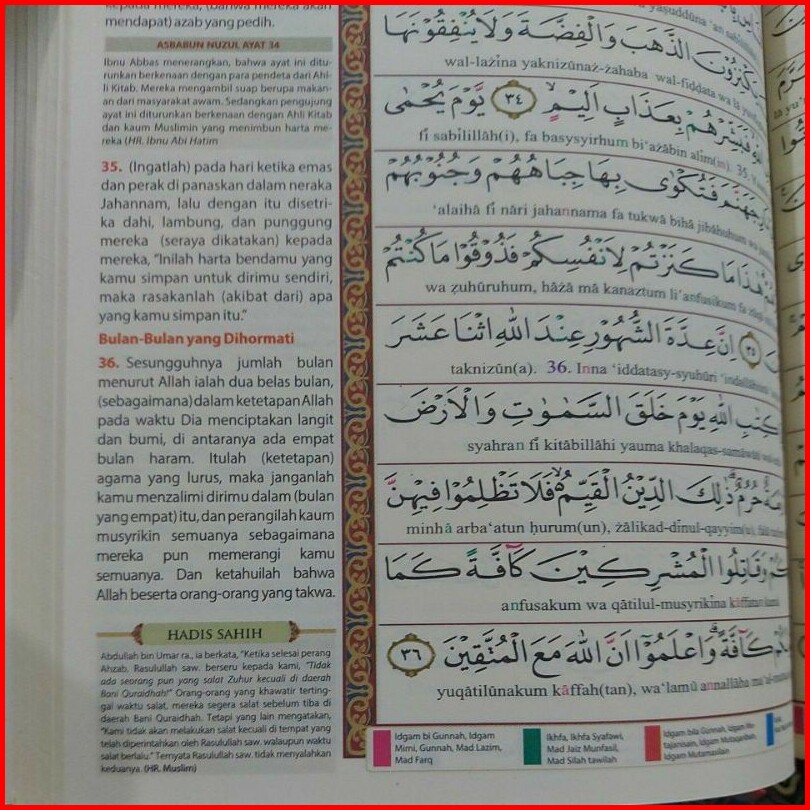 mendapat) azab yang pedih.
ASBABUN NUZUL AYAT 34
Ibnu Abbas menerangkan, bahwa ayat ini ditu-
runkan berkenaan dengan para pendeta dari Ahl-
li Kitab. Mereka mengambil suap berupa makan-
an dari masyarakat awam. Sedangkan pengujung
ayat ini diturunkan berkenaan dengan Ahli Kitab
dan kaum Muslimin yang menimbun harta me-
reka (HR. Ibnu Abi Hatim
35. (Ingatlah) pada hari ketika emas
dan perak di panaskan dalam neraka
Jahannam, lalu dengan itu disetri-
ka dahi, lambung, dan punggung
mereka (seraya dikatakan) kepada
mereka, "Inilah harta bendamu yang
kamu simpan untuk dirimu sendiri,
maka rasakanlah (akibat dari) apa
yang kamu simpan itu."
Bulan-Bulan yang Dihormati
36. Sesungguhnya jumlah bulan
menurut Allah ialah dua belas bulan,
(sebagaimana) dalam ketetapan Allah
pada waktu Dia menciptakan langit
dan bumi, di antaranya ada empat
bulan haram. Itulah (ketetapan)
agama yang lurus, maka janganlah
kamu menzalimi dirimu dalam (bulan
yang empat) itu, dan perangilah kaum
musyrikin semuanya sebagaimana
mereka pun memerangi kamu
semuanya. Dan ketahuilah bahwa
Allah beserta orang-orang yang takwa.
HADIS SAHIH
Abdullah bin Umar ra., ia berkata, "Ketika selesai perang
Ahzab, Rasulullah saw. berseru kepada kami, "Tidak
ada seorang pun yang salat Zuhur kecuali di daerah
Bani Quraidhah!" Orang-orang yang khawatir terting-
gal waktu salat, mereka segera salat sebelum tiba di
daerah Bani Quraidhah. Tetapi yang lain mengatakan,
"Kami tidak akan melakukan salat kecuali di tempat yang
telah diperintahkan oleh Rasulullah saw. walaupun waktu
salat berlalu." Ternyata Rasulullah saw. tidak menyalahkan
keduanya. (HR. Muslim)
يَكْنِزُوْنَ الذَّهَبَ وَالْفِضَّةَ وَلَا يُنْفِقُوْنَهَا
wal-lażīna yaknizūnaż-żahaba wal-fiḍḍata wa lā
فَبَشِّرْهُمْ بِعَذَابٍ اَلِيْمٍ ۙ ٣٤ يَّوْمَ يُحْمٰى
fī sabīlillāh(i), fa basysyirhum bi'ażābin alīm(in). 35.
جَهَنَّمَ فَتُكْوٰى بِهَا جِبَاهُهُمْ وَجُنُوْبُهُمْ
'alaihā fī nāri jahannama fa tukwā bihā jibāhuhum wa
هٰذَا مَا كَنَزْتُمْ لِاَنْفُسِكُمْ فَذُوْقُوْا مَا كُنْتُمْ
wa ẓuhūruhum, hāżā mā kanaztum li'anfusikum fa
٣٥ اِنَّ عِدَّةَ الشُّهُوْرِ عِنْدَ اللّٰهِ اثْنَا عَشَرَ
taknizūn(a). 36. Inna 'iddatasy-syuhūri 'indallāhiṡnā
كِتٰبِ اللّٰهِ يَوْمَ خَلَقَ السَّمٰوٰتِ وَالْاَرْضَ
syahran fī kitābillāhi yauma khalaqas-samāwāti
حُرُمٌ ۗ ذٰلِكَ الدِّيْنُ الْقَيِّمُ ەۙ فَلَا تَظْلِمُوْا فِيْهِنَّ
minhā arba'atun ḥurum(un), żālikad-dīnul-qayyim(u),
وَقَاتِلُوا الْمُشْرِكِيْنَ كَاۤفَّةً كَمَا
anfusakum wa qātilul-musyrikīna kāffatan kamā
كَاۤفَّةً ۗ وَاعْلَمُوْٓا اَنَّ اللّٰهَ مَعَ الْمُتَّقِيْنَ ٣٦
yuqātilūnakum kāffah(tan), wa'lamū annallāha
Idgam bi Gunnah, Idgam
Mimi, Gunnah, Mad Lazim,
Mad Farq
Ikhfa, Ikhfa Syafawi,
Mad Jaiz Munfasil,
Mad Silah tawilah
Idgam bila Gunnah, Idgam Mu-
tajanisain, Idgam Mutaqaribain,
Idgam Mutamasilain